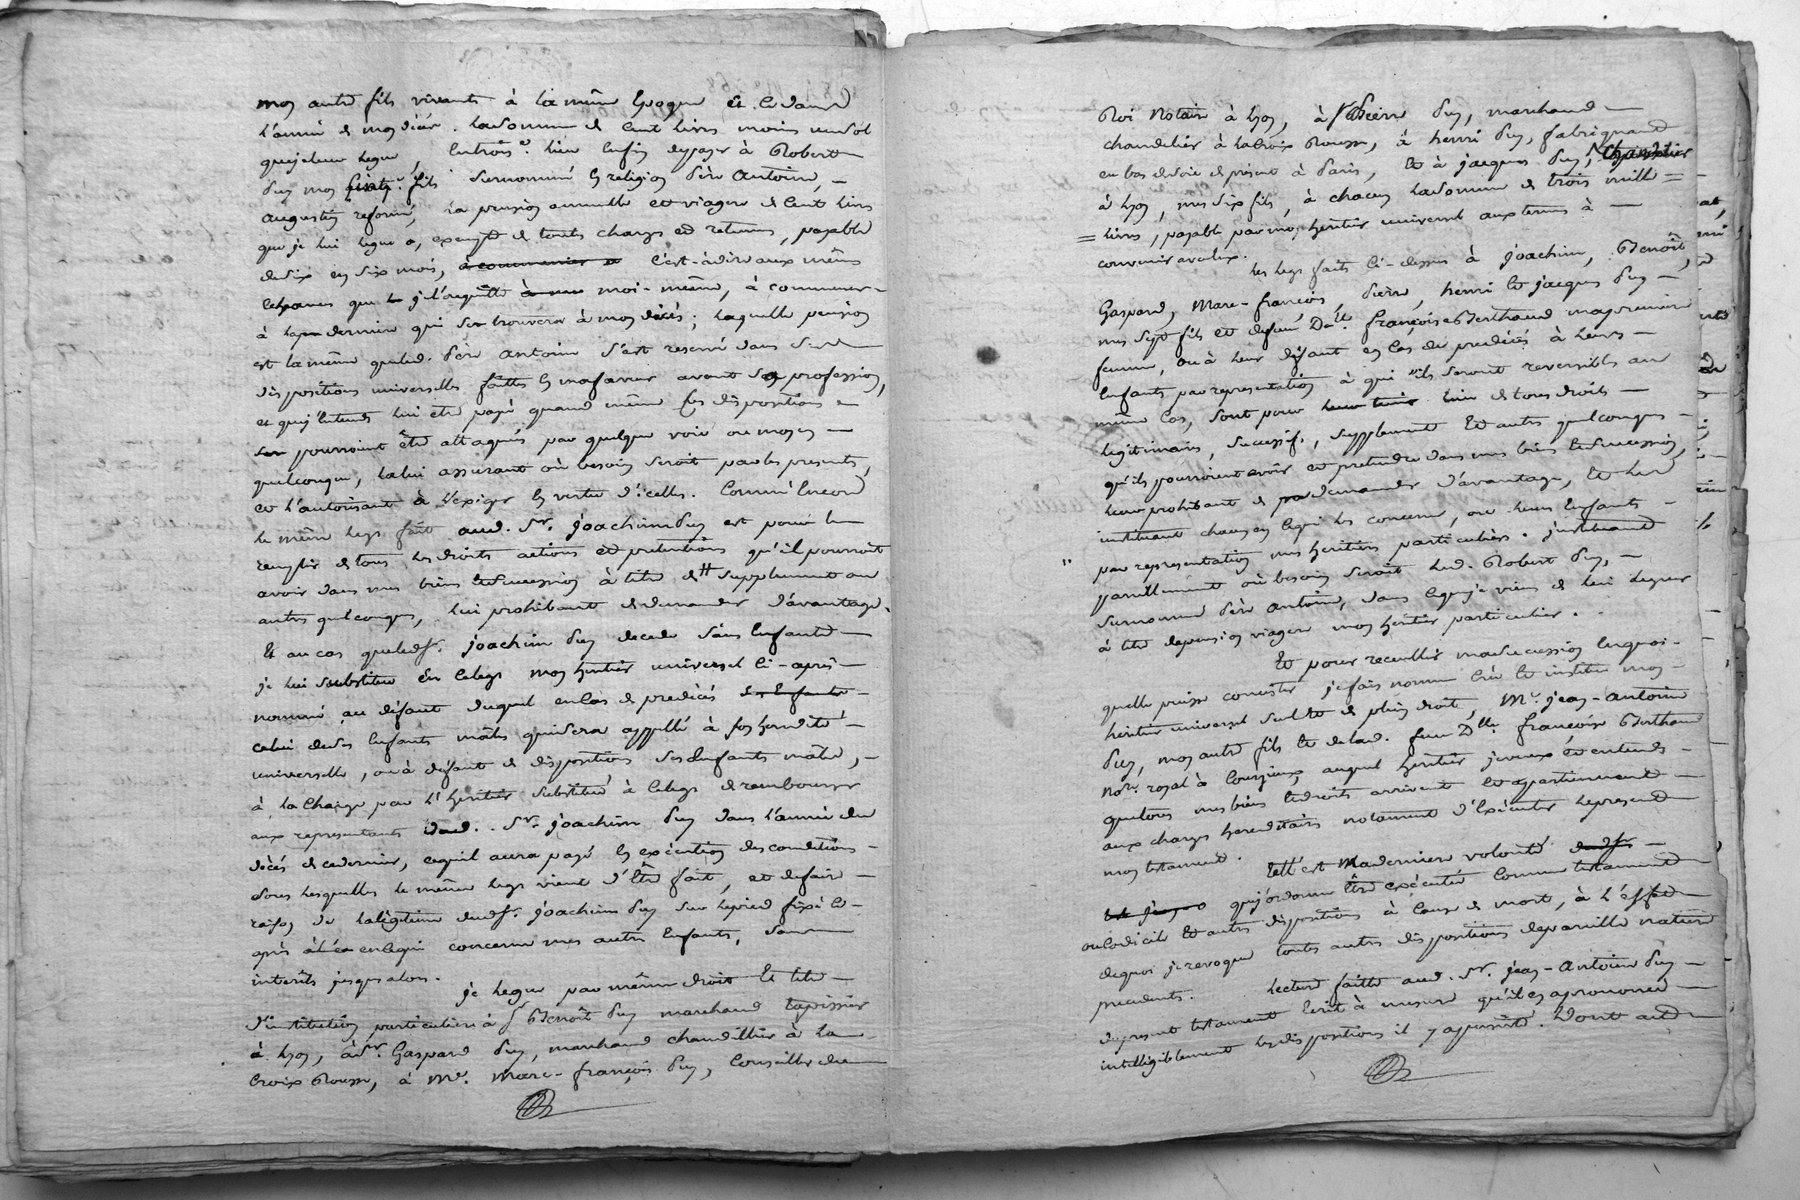 mon autre fils vivants à la même Epoque et ce dans
l'année de mon décès. la somme de Cent livres moins
que je leur legue, Entroisr. lieu Enfin de payer à Robert
Puy mon fils surnommé En religion Père Antoine, —
augustin reformé, la pension annuelle et viagere de Cent livres
que je lui legue, exempte de toutes charges et retenues, payable
de six en six mois, c'est-à-dire aux mêmes
Echeances que je l'acquitte moi-même, à commencer
à la derniere qui se trouvera à mon décès; laquelle pension
est la même que led. Père Antoine s'est reservé dans
dispositions universelles faittes En ma faveur avant sa profession,
et que j'Entends lui être payé quand même ses dispositions
pourroient être attaquées par quelque voie ou moyen —
quelconque, la lui assurant où besoin seroit par les presentes,
et l'autorisant à l'exiger En vertu d'icelles. Comme Encore
le même legs fait aud. Sr. Joachim Puy est pour le
remplir de tous les droits actions et pretentions qu'il pourroit
avoir dans mes biens et succession à titre de supplement ou
autres quelconques, lui prohibant de demander d'avantage.
Et au cas que led. Sr. Joachim Puy decede sans Enfants —
je lui substitue En ce legs mon heritier universel ci-après —
nommé, au défaut duquel en cas de predécès
celui de ses Enfants mâles qui sera appellé à son heredité —
universelle, ou à défaut de dispositions ses Enfants mâles, —
à la charge par l'heritier substitué à ce legs de rembourser
aux representants dud. Sr. Joachim Puy dans l'année du
décès de ce dernier, ce qu'il aura payé En exécution des conditions —
sous lesquelles le même legs vient d'Etre fait, et de faire —
raison de la légitime dud. Sr. Joachim Puy sur le pied fixé ci-
après en ce qui concerne mes autres Enfants, sans
interêts jusqu'alors.
Je legue par même droit Et titre —
d'institution particuliere à Sr Benoît Puy marchand tapissier
à Lyon, à Sr. Gaspard Puy, marchand chandellier à la
Croix Rousse, à Me. Marc-françois Puy, Conseiller du
Roi Notaire à Lyon, à Sr Pierre Puy, marchand —
chandelier à la Croix Rousse, à henri Puy, fabriquant
en bas de soie de present à Paris, Et à Jacques Puy,
à Lyon, mes six fils, à chacun la somme de trois mille =
= livres, payable par mon heritier universel aux termes à —
convenir avec eux.
Les legs faits ci-dessus à Joachim, Benoît,
Gaspard, Marc-françois, Pierre, henri Et Jacques Puy —
mes sept fils et de feue Dlle. françoise Berthaud ma premiere
femme, ou à leur défaut en cas de predécès à leurs —
Enfants par representation à qui ils seront reversibles au
même cas, sont pour de tous droits —
legitimaires, successifs, supplement Et autres quelconques —
qu'ils pourroient avoir et pretendre dans mes biens Et succession,
leur prohibant de demander d'avantage, Et les
instituant chacun En ce qui les concerne, ou leurs Enfants —
par representation mes heritiers particuliers. instituant
pareillement où besoin seroit led. Robert Puy, —
surnommé Père Antoine, dans ce que je viens de lui leguer
à titre de pension viagere mon heritier particulier.
Et pour recueillir ma succession En quoi-
qu'elle puisse consister je fais nomme Crée Et institue mon —
heritier universel seul Et de plein droit, Me. Jean-Antoine
Puy, mon autre fils Et de lad. feue Dlle. françoise Berthaud
Nore. royal à Courzieux, auquel heritier je veux Et entends —
que tous mes biens Et droits arrivent Et appartiennent —
aux charges hereditaires notamment d'Exécuter le present
mon testament. Tell'est ma derniere volonté —
que j'ordonne Etre exécuté comme testament
ou Codicile Et autres dispositions à Cause de mort, à l'effet
de quoi je revoque toutes autres dispositions de pareille nature
precedentes. Lecture faitte aud. Sr. Jean-Antoine Puy —
du present testament Ecrit à mesure qu'il en a prononcé —
intelligiblement les dispositions il y a persisté. Dont acte